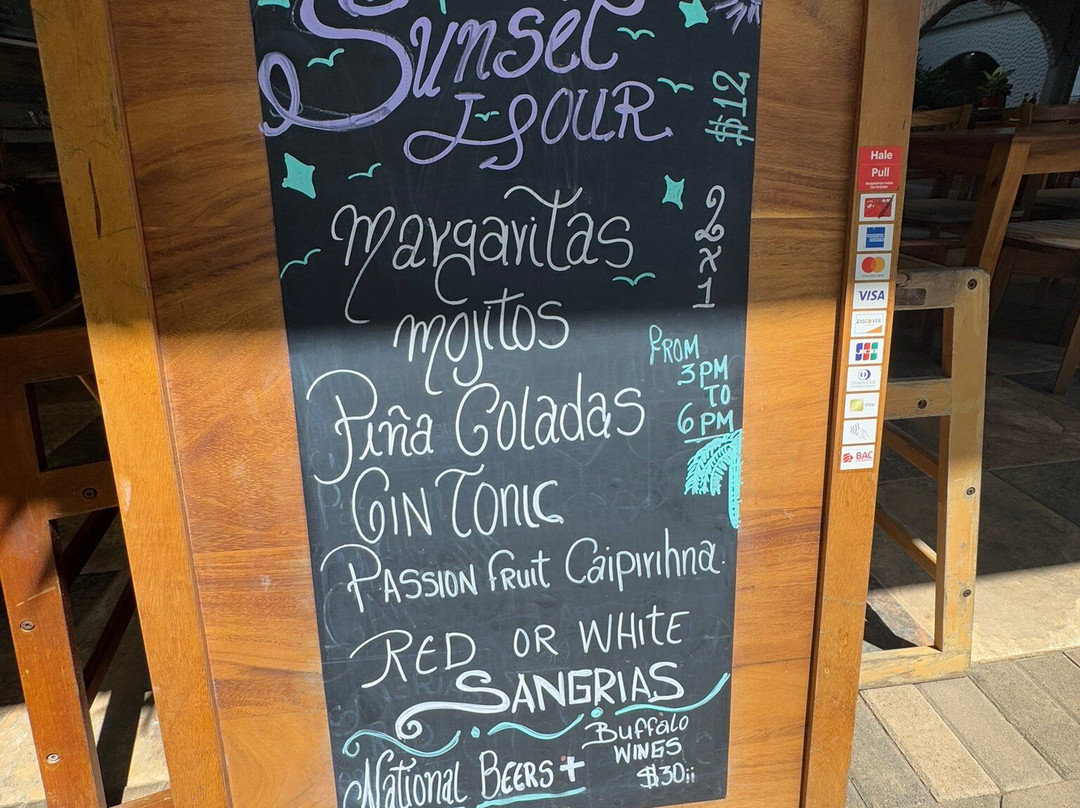 Sunset
HOUR
$12
Margaritas
2x1
mojitos
FROM
3PM
TO
6PM
Piña Coladas
GIN TONIC
PASSION fruit Caipirihna.
RED OR WHITE
SANGRIAS
National BEERS +
Buffalo
WINGS
$30¡¡
Hale
Pull
VISA
DISCOVER
JCB
BAC